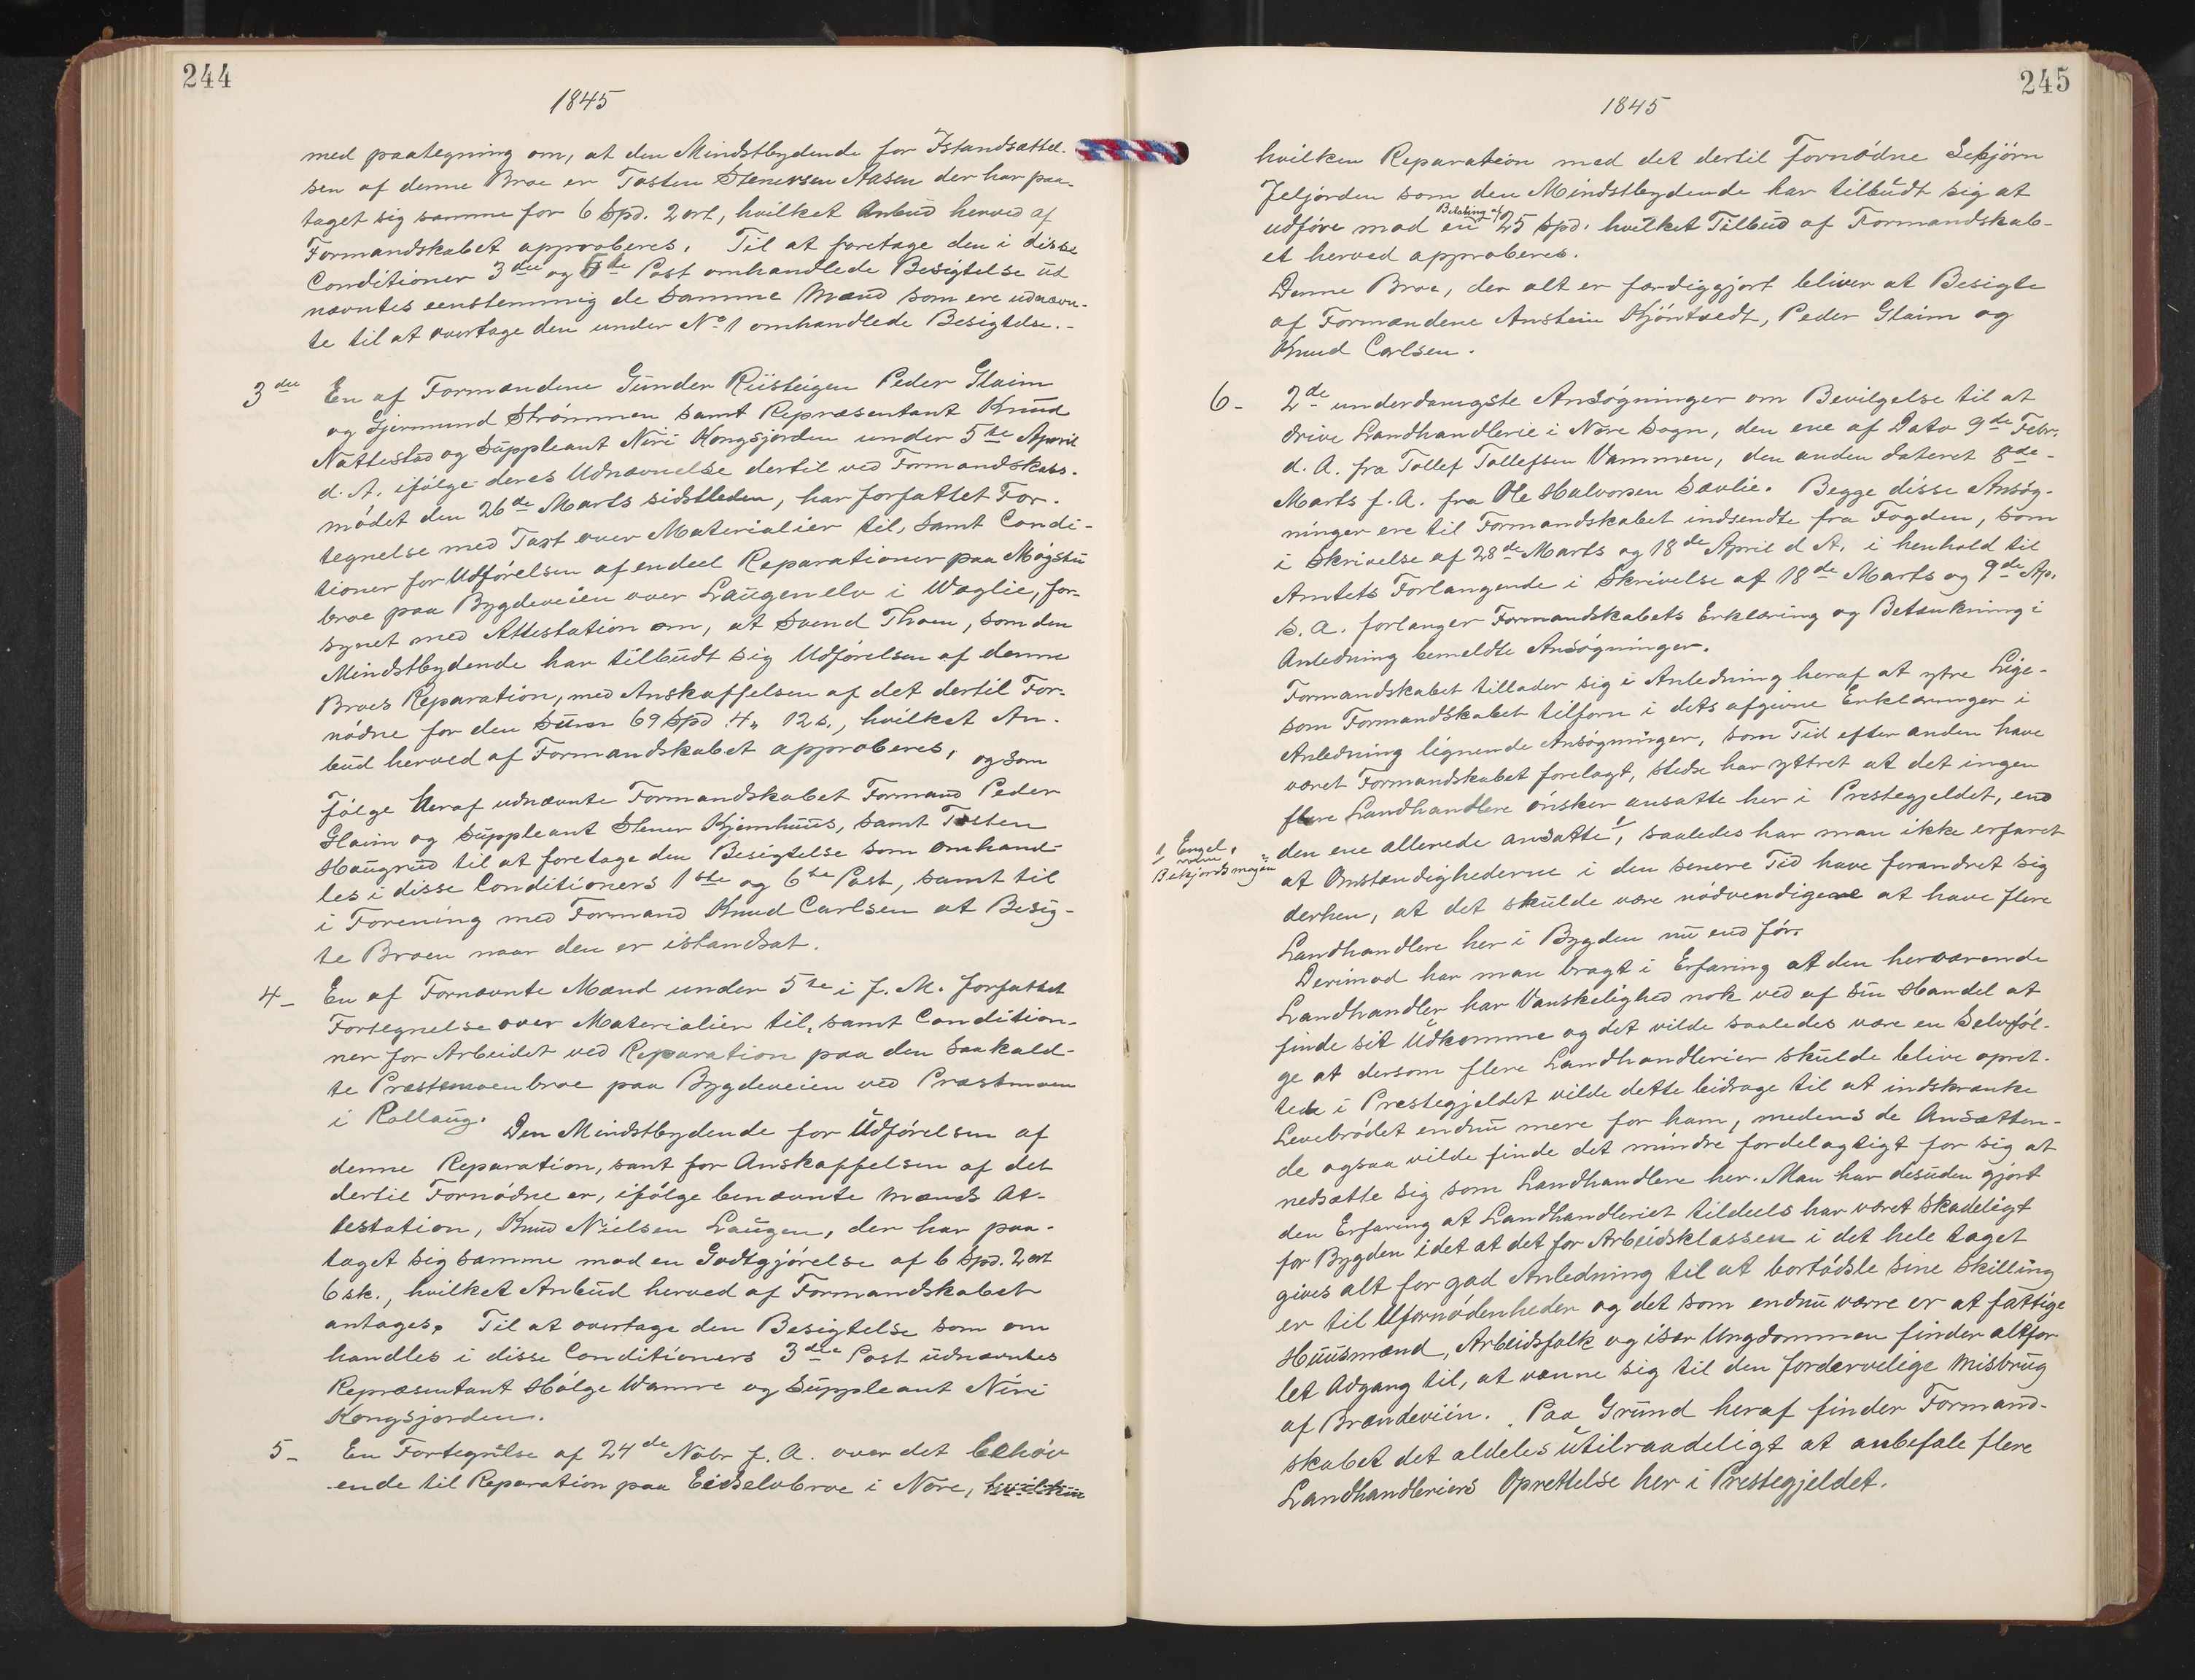 244
1845
med paategning om, at den Mindstbydende for Istandsættel-
sen af denne Broe er Tosten Stenersen Aasen der har paa-
taget sig samme for 6 Spd. 2 ort, hvilket Anbud herved af
Formandskabet approberes. Til at foretage den i disse
Conditioner 3die og 5te Post omhandlede Besigtelse ud
nævntes eenstemmig de samme Mænd som ere udnævn-
te til at overtage den under No 1 omhandlede Besigtelse.-
3die En af Formændene Gunder Riisteigen Peder Glaim
og Gjermund Strømmen samt Repræsentant Knud
Nattestad og Suppleant Niri Kongsjorden under 5te April
d. A. ifølge deres Udnævnelse dertil ved Formandskabs-
mødet den 26de Marts sidstleden, har forfattet For-
tegnelse med Taxt over Materialier til, samt Condi-
tioner for Udførelsen af endeel Reparationer paa Mogstu
broe paa Bygdeveien over Laugenelv i Weglie, for-
synet med Attestation om, at Svend Thoen, som den
Mindstbydende har tilbudt sig Udførelsen af denne
Broes Reparation, med Anskaffelsen af det dertil For-
nødne for den Sum 69 Spd 4„ 12 s., hvilket An-
bud herved af Formandskabet approberes, og som
Følge heraf udnævnte Formandskabet Formand Peder
Glaim og Suppleant Stener Kjemhuus, samt Tosten
Haugrud til at foretage den Besigtelse som omhand-
les i disse Conditioners 1ste og 6te Post, samt til
i Forening med Formand Knud Carlsen at Besig-
te Broen naar den er istandsat.
4- En af Fornævnte Mænd under 5te i f. M. forfattet
Fortegnelse over Materialier til, samt Condition-
ner for Arbeidet ved Reparation paa den saakald-
te Præstemoenbroe paa Bygdeveien ved Præstmoen
i Rollaug. Den Mindstbydende for Udførelsen af
denne Reparation, samt for Anskaffelsen af det
dertil Fornødne er, ifølge benævnte Mænds At-
testation, Knud Nielsen Laugen, der har paa-
taget sig samme mod en Godtgjørelse af 6 Spd. 2 ort
6 sk., hvilket Anbud herved af Formandskabet
antages. Til at overtage den Besigtelse som om
handles i disse Conditioners 3die Post udnævntes
Repræsentant Hølge Wamre og Suppleant Niri
Kongsjorden.
5- En Fortegnelse af 24de Nobr f. A. over det behøv
ende til Reparation paa Eidselvbroe i Nore, hvilken
245
1845
hvilken Reparation med det dertil fornødne
Jeljorden som den Mindstbydende har tilbudt sig at
udføre mod en Betaling af 25 Spd. hvilket Tilbud af Formandskab-
et herved approberes.
Denne Broe, der alt er færdiggjort bliver at Besigte
af Formændene Anstein Kjøntvedt, Peder Glaim og
Knud Carlsen.
6- 2de underdanigste Ansøgninger om Bevilgelse til at
drive Landhandlerie i Nore Sogn, den ene af Dato 9de Febr.
d. A. fra Tollef Tollefsen Vammen, den anden dateret 8de-
Marts f. A. fra Ole Halvorsen Sævlie. Begge disse Ansøg-
ninger ere til Formandskabet indsendte fra Fogden, som
i Skrivelse af 28de Marts og 18de April d A. i henhold til
Amtets Forlangende i Skrivelse af 18de Marts og 9de Ap.
s. A. forlanger Formandskabets Erklæring og Betænkning i
Anledning bemeldte Ansøgninger.
Formandskabet tillader sig i Anledning heraf at ytre Lige-
som Formandskabet tilforn i dets afgivne Erklæringer i
Anledning lignende Ansøgninger, som Tid efter anden have
været Formandskabet forelagt, stedse har yttret at det ingen
flere Landhandlere ønsker ansatte her i Prestegjeldet, end
den ene allerede ansatte 1/, saaledes har man ikke erfaret
1/ Engel
at Omstændighederne i den senere Tid have forandret sig
derhen, at det skulde være nødvendigere at have flere
Landhandlere her i Bygden nu end før.
Derimod har man bragt i Erfaring at den herværende
Landhandler har Vanskelighed nok ved af sin Handel at
finde sit Udkomme og det vilde saaledes være en Selvføl-
ge at dersom flere Landhandlerier skulde blive opret-
tede i Prestegjeldet vilde dette bidrage til at indskrænke
Levebrødet endnu mere for ham, medens de Ansætten-
de ogsaa vilde finde det mindre fordelagtigt for sig at
nedsætte sig som Landhandlere her. Man har desuden gjort
den Erfaring at Landhandleriet tildeels har været skadeligt
for Bygden idet at det for Arbeidsklassen i det hele taget
gives alt for god Anledning til at bortødsle sine Skilling
er til Ufornødenheder og det som endnu værre er at fattige
Huusmænd, Arbeidsfolk og især Ungdommen finder altfor
let Adgang til, at vænne sig til den fordærvelige Misbrug
af Brændeviin. Paa Grund heraf finder Formand-
skabet det aldeles utilraadeligt at anbefale flere
Landhandleriers Oprettelse her i Prestegjeldet.